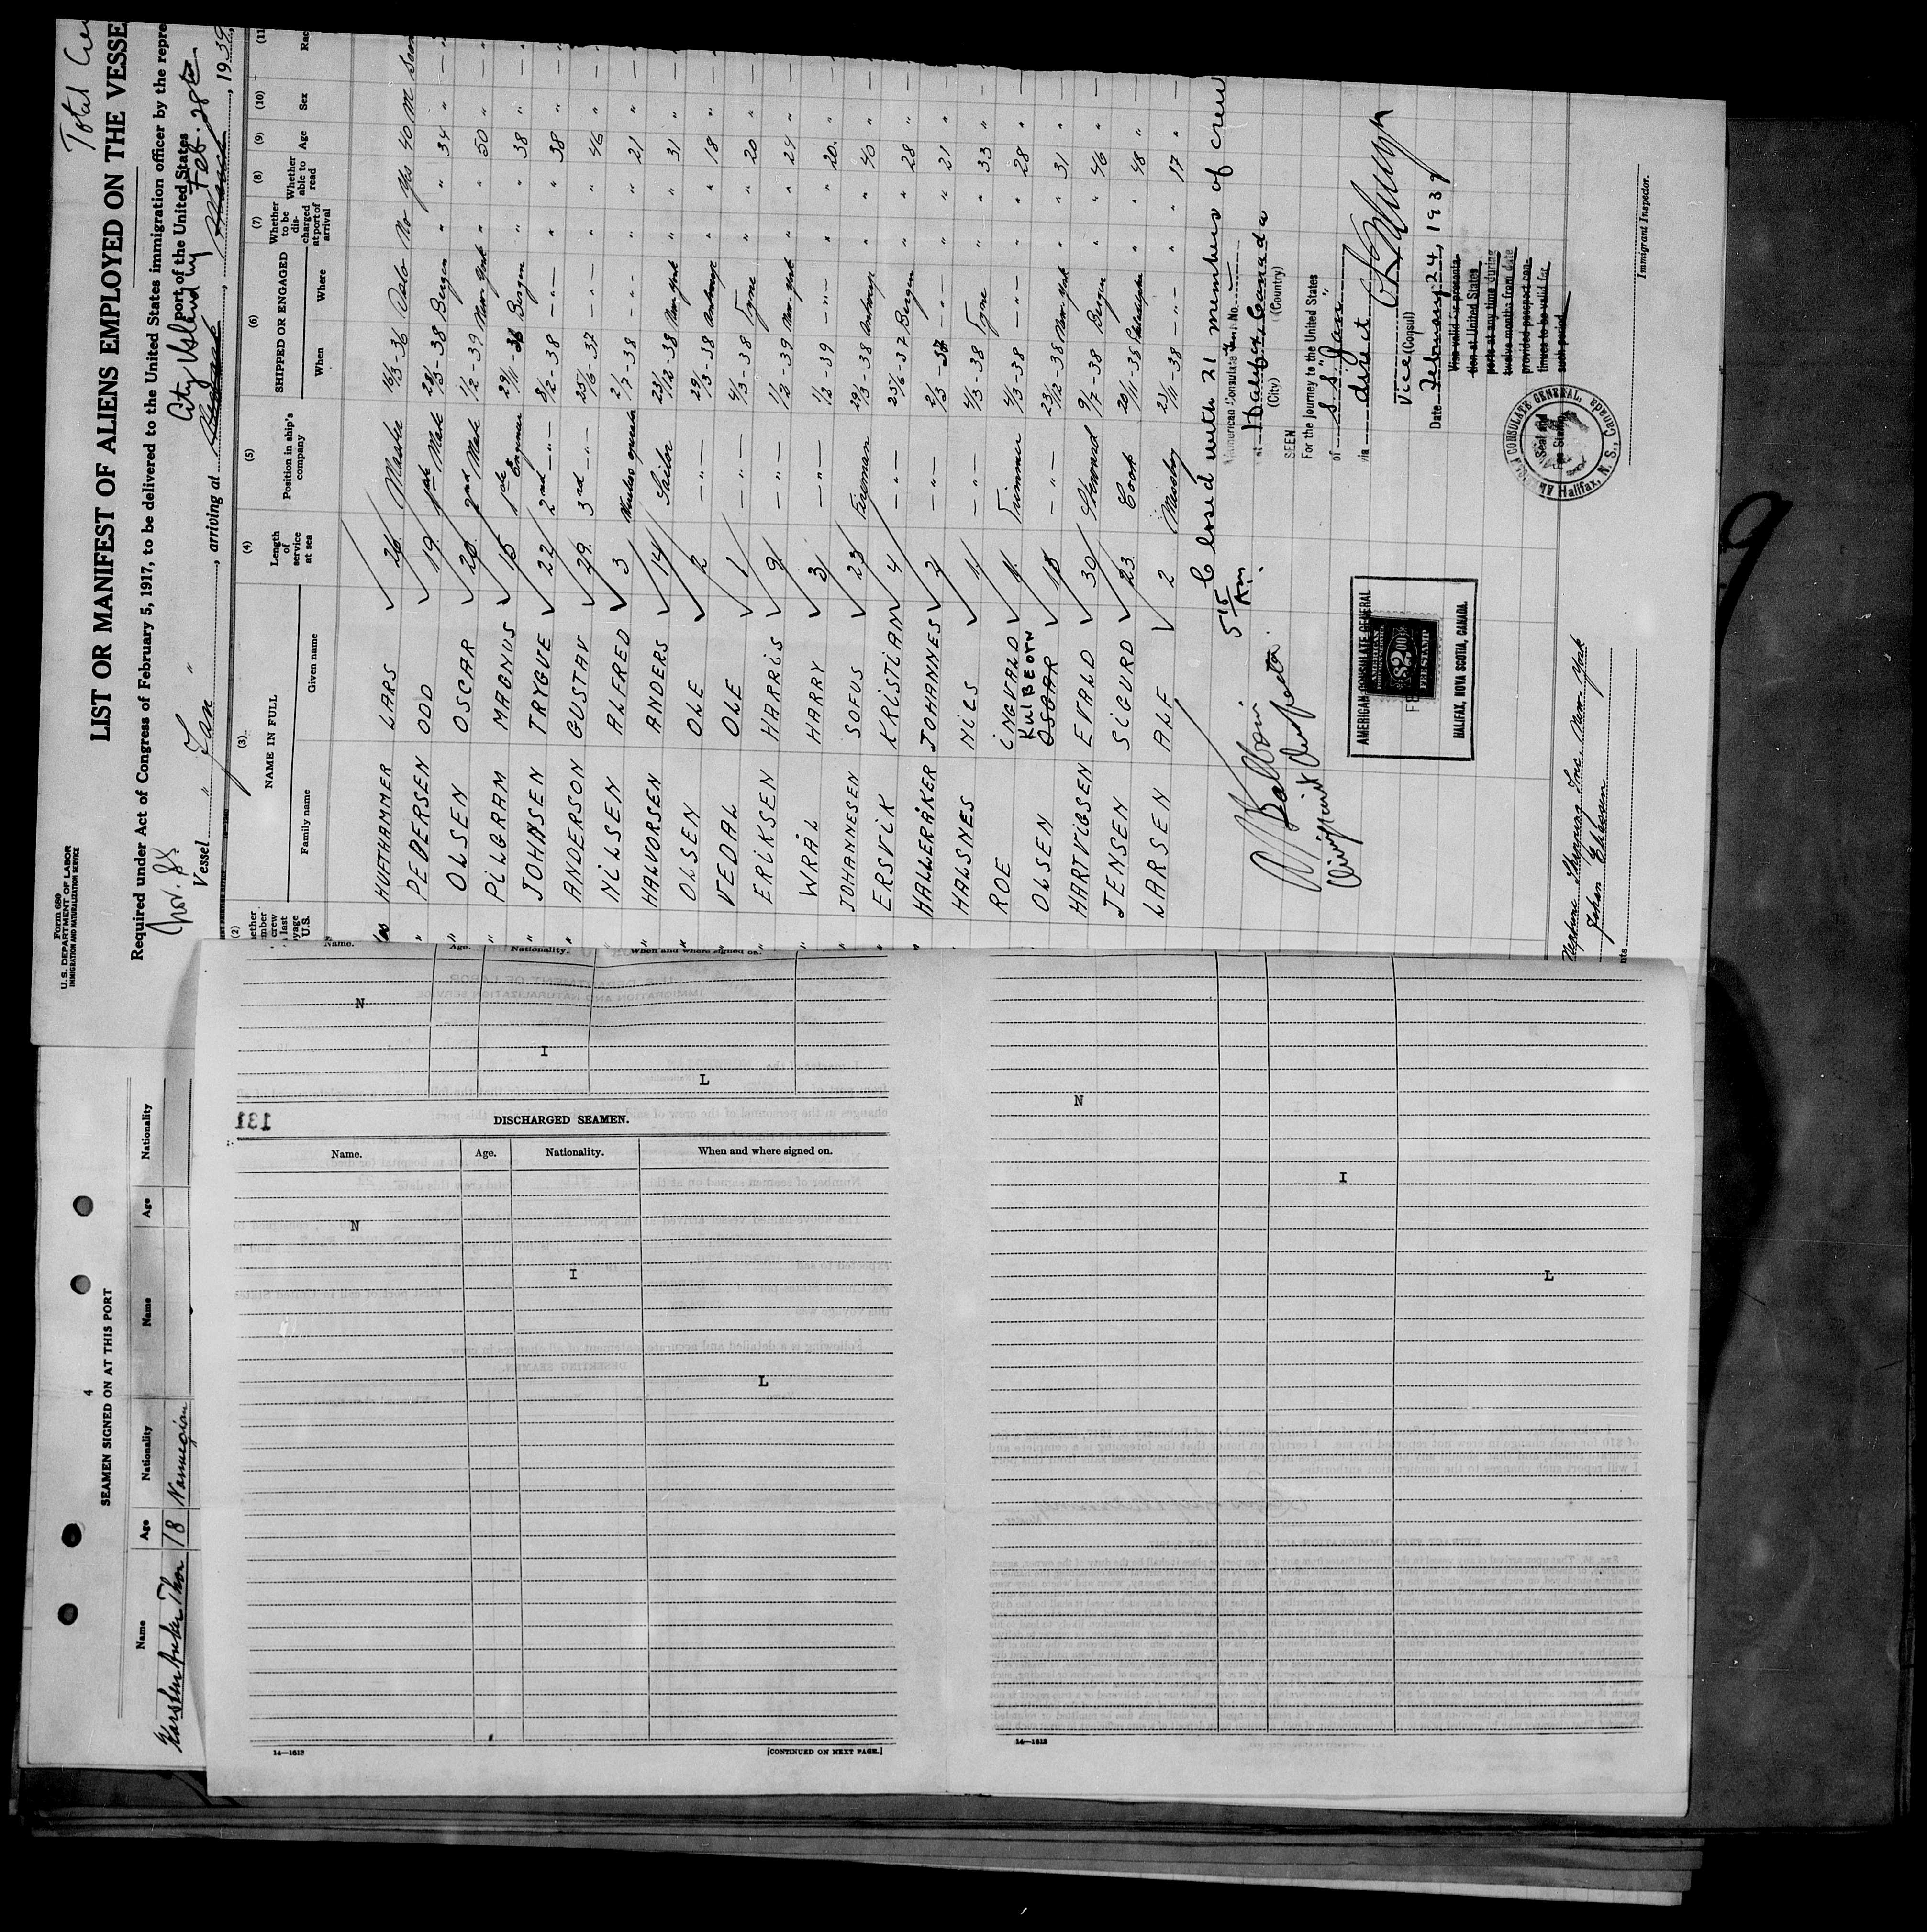 Form 680
U.S. DEPARTMENT OF LABOR
IMMIGRATION AND NATURALIZATION SERVICE
Total Cre
LIST OR MANIFEST OF ALIENS EMPLOYED ON THE VESSE
Required under Act of Congress of February 5, 1917, to be delivered to the United States immigration officer by the repre
port of the United States
Nor. SS
Vessel " Jan ", arriving at City Island Ny Feb. 28th, 1939
(2) (3) (4) (5) (6) (7) (8) (9) (10) (11
NAME IN FULL
Family name Given name
Length of service at sea
Position in ship's company
SHIPPED OR ENGAGED
When Where
Whether to be discharged at port of arrival
Whether able to read
Age Sex Rac
HUFTHAMMER LARS 26 Master 16/3-36 Oslo No Yes 40 M Scan
" PEDERSEN ODD 19 1st Mate 28/3-38 Bergen " " 34 "
" OLSEN OSCAR 20 2nd Mate 1/2-39 New-York " " 50 "
" PILGRAM MAGNUS 15 1st Engineer 29/11-38 Bergen " " 38 "
" JOHNSEN TRYGVE 22 2nd -"- 8/12-38 -"- " " 38 "
" ANDERSON GUSTAV 29 3rd -"- 25/6-37 -"- " " 46 "
" NILSEN ALFRED 3 Wireless operator 2/7-38 -"- " " 21 "
" HALVORSEN ANDERS 14 Sailor 23/12-38 New York " " 31 "
" OLSEN OLE 2 -"- 29/3-38 Antwerp " " 18 "
" VEDAL OLE 1 -"- 4/3-38 Tyne " " 20 "
" ERIKSEN HARRIS 9 -"- 1/2-39 New-York " " 24 "
" WRÅL HARRY 3 -"- 1/2-39 -"- " " 20 "
" JOHANNESEN SOFUS 23 Fireman 29/3-38 Antwerp " " 40 "
" ERSVIK KRISTIAN 4 -"- 25/6-37 Bergen " " 28 "
" HALLERÅKER JOHANNES 2 -"- 2/3-37 -"- " " 21 "
HALSNES NILS 11 -"- 4/3-38 Tyne " " 33 "
ROE INGVALD 11 Trimmer 4/3-38 -"- " " 28 "
OLSEN KulBEORN OSCAR 13 -"- 23/12-38 New-York " " 31 "
HARTVIGSEN EVALD 30 Steward 9/7-38 Bergen " " 46 "
JENSEN SIGURD 23 Cook 20/11-38 " " 48 "
LARSEN ALF 2 Messboy 23/11-38 -"- " " 17 "
5 15 Am. Closed with 21 members of crew
American Consulate
at Halifax, Canada
(City) (Country)
SEEN
For the journey to the United States
of S.S. "Jan"
via direct
Vice (Consul)
Date February 24, 1939
Visa valid for presenta-
tion at United States
ports at any time during
twelve months from date
provided passport con-
tinues to be valid for
such period
AMERICAN CONSULATE GENERAL
AMERICAN FOREIGN SERVICE
$2.00
FEE STAMP
HALIFAX, NOVA SCOTIA, CANADA.
CONSULATE GENERAL, Halifax, N. S., Canada
Immigrant Inspector.
Neptune Shipping Inc. New York
9
4
SEAMEN SIGNED ON AT THIS PORT
Name Age Nationality Name Age Nationality
Thor 18 Norwegian
Name. Age. Nationality. When and where signed on.
N
I
L
131
DISCHARGED SEAMEN.
Name. Age. Nationality. When and where signed on.
N
I
L
14—1613
[CONTINUED ON NEXT PAGE.]
N
I
L
14—1613